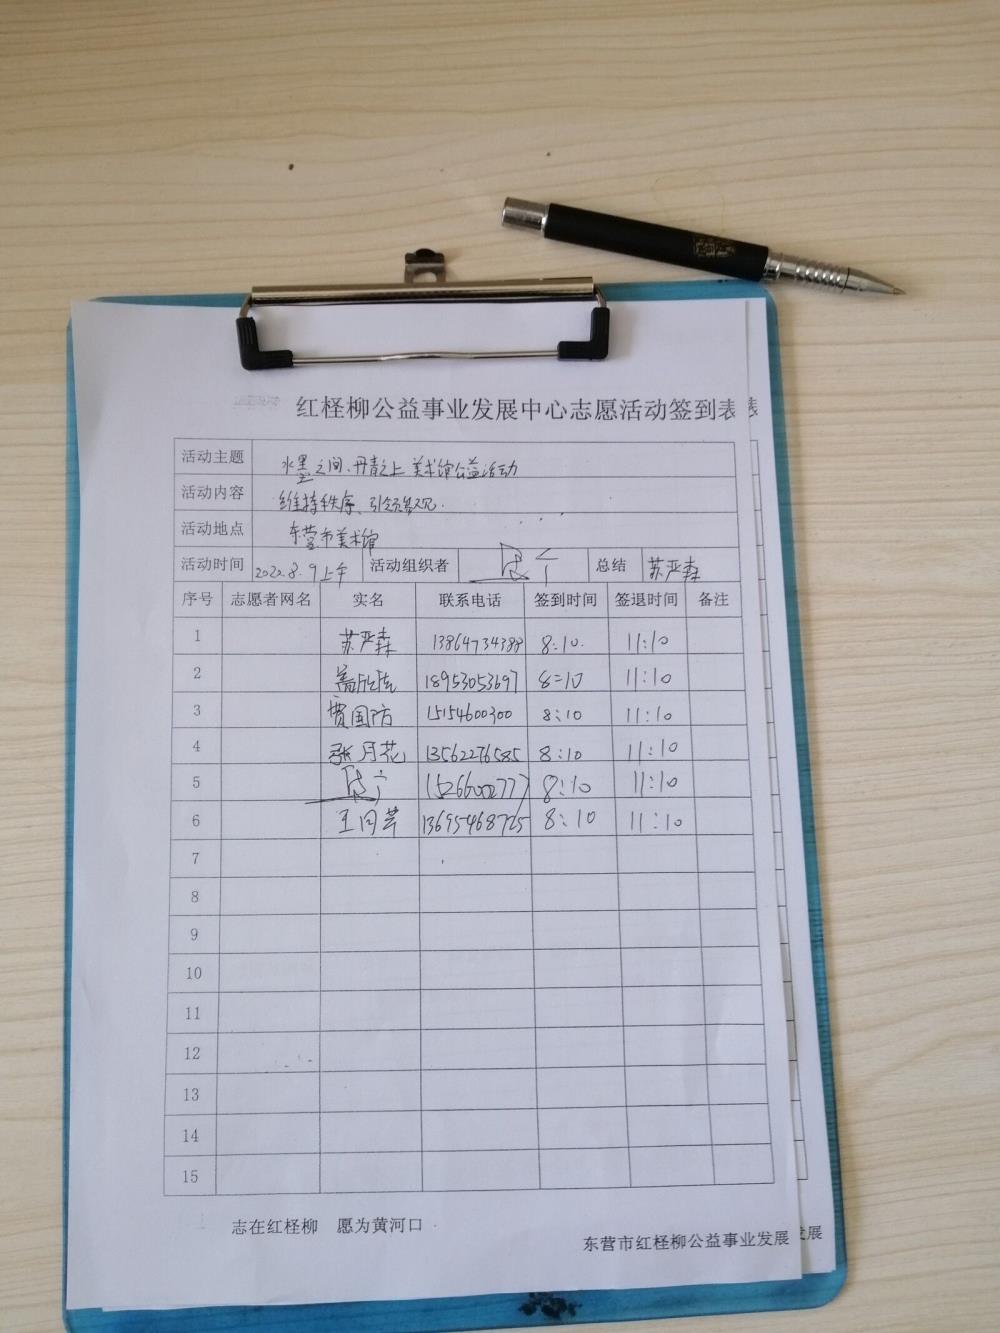 红柽柳公益事业发展中心志愿活动签到表
活动主题 水墨之间、丹青之上 美术馆公益活动
活动内容 维持秩序、引领参观.
活动地点 东营市美术馆
活动时间 2020.8.9上午 活动组织者 总结 苏严森
序号 志愿者网名 实名 联系电话 签到时间 签退时间 备注
1 苏严森 13864734388 8:10. 11:10
2 18953053697 8:10 11:10
3 贾国防 15154600300 8:10 11:10
4 张月花 13562276585 8:10 11:10
5 15266002777 8:10 11:10
6 13695468725 8:10 11:10
7
8
9
10
11
12
13
14
15
志在红柽柳 愿为黄河口
东营市红柽柳公益事业发展
发展